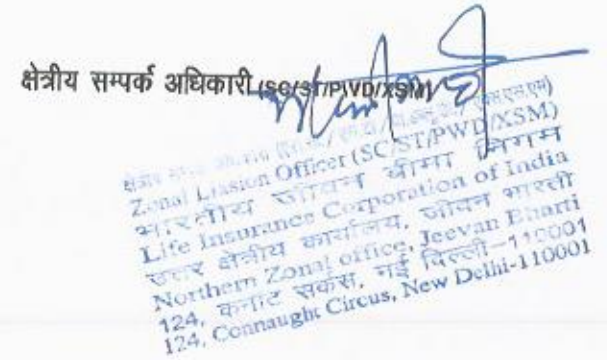 क्षेत्रीय सम्पर्क अधिकारी (SC/ST/PWD/XSM)
Zonal Liasion Officer (SC/ST/PWD/XSM)
भारतीय जीवन बीमा निगम
Life Insurance Corporation of India
उत्तर क्षेत्रीय कार्यालय, जीवन भारती
Northern Zonal office, Jeevan Bharti
124, कनाट सर्कस, नई दिल्ली-110001
124, Connaught Circus, New Delhi-110001